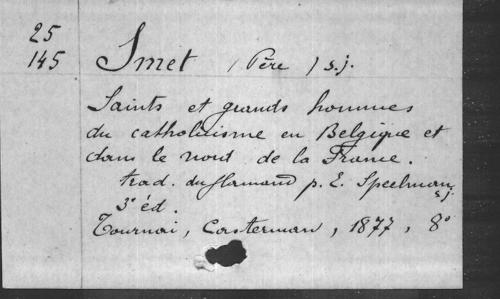 25
145
Smet (Père) s.j.
Saints et grands hommes
du catholicisme en Belgique et
dans le nord de la France.
trad. du flamand p. E. Speelman s.j.
3e éd.
Tournai, Casterman, 1877, 8°